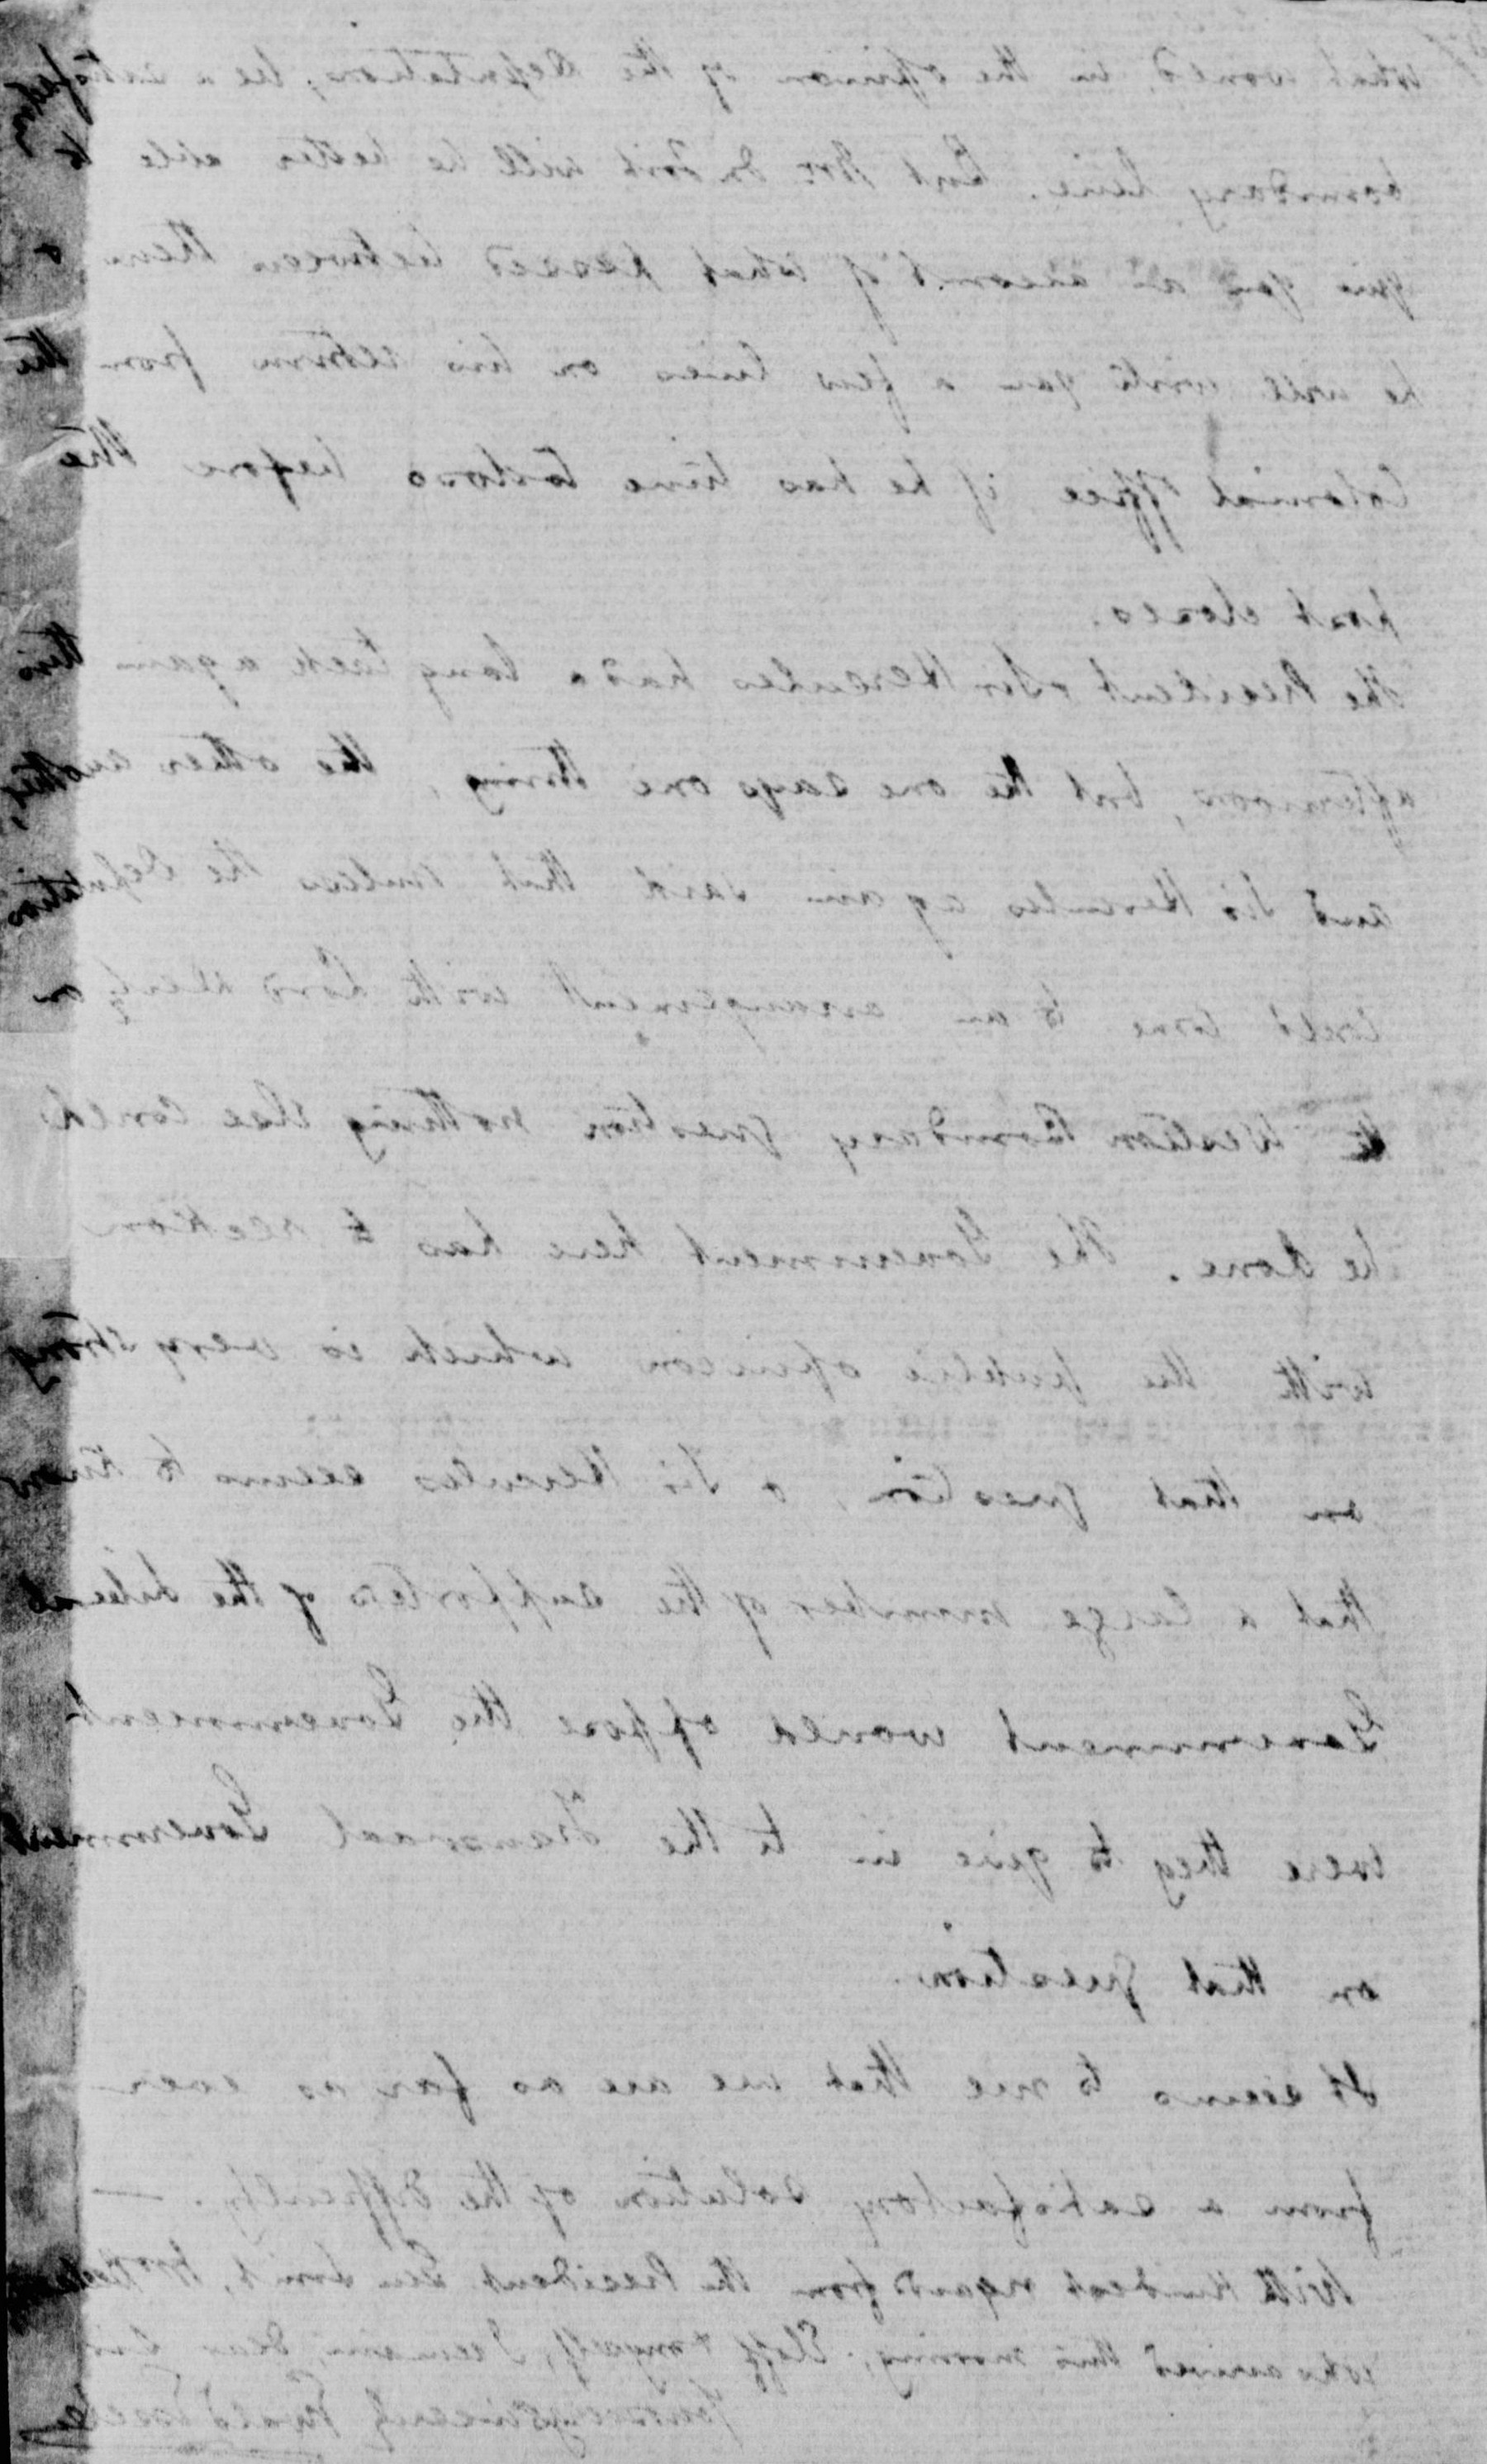 what would, in the opinion of the Deputation, be a satisfactory
boundary line. But Mr. du Toit will be better able to
give you an account of what passed between them &
he will write you a few lines on his return from the
Colonial Office if he has time to do so before the
post closes.
The President & Sir Hercules had a long treck again this
afternoon, but the one says one thing, the other another,
and Sir Hercules again said that unless the Deputation
could come to an arrangement with Lord Derby on
the Western Boundary question nothing else could
be done. The Government here has to reckon
with the public opinion which is very strong
on that question, & Sir Hercules seems to know
that a large number of the supporters of the Liberal
Government would oppose the Government
were they to give in to the Transvaal Government
on that question.
It seems to me that we are as far as ever
from a satisfactory solution of the difficulty. —
With kindest regards from the President, Gen Smit,
who arrived this morning, Eloff & myself, I remain, dear Sir
Yours very sincerely Ewald